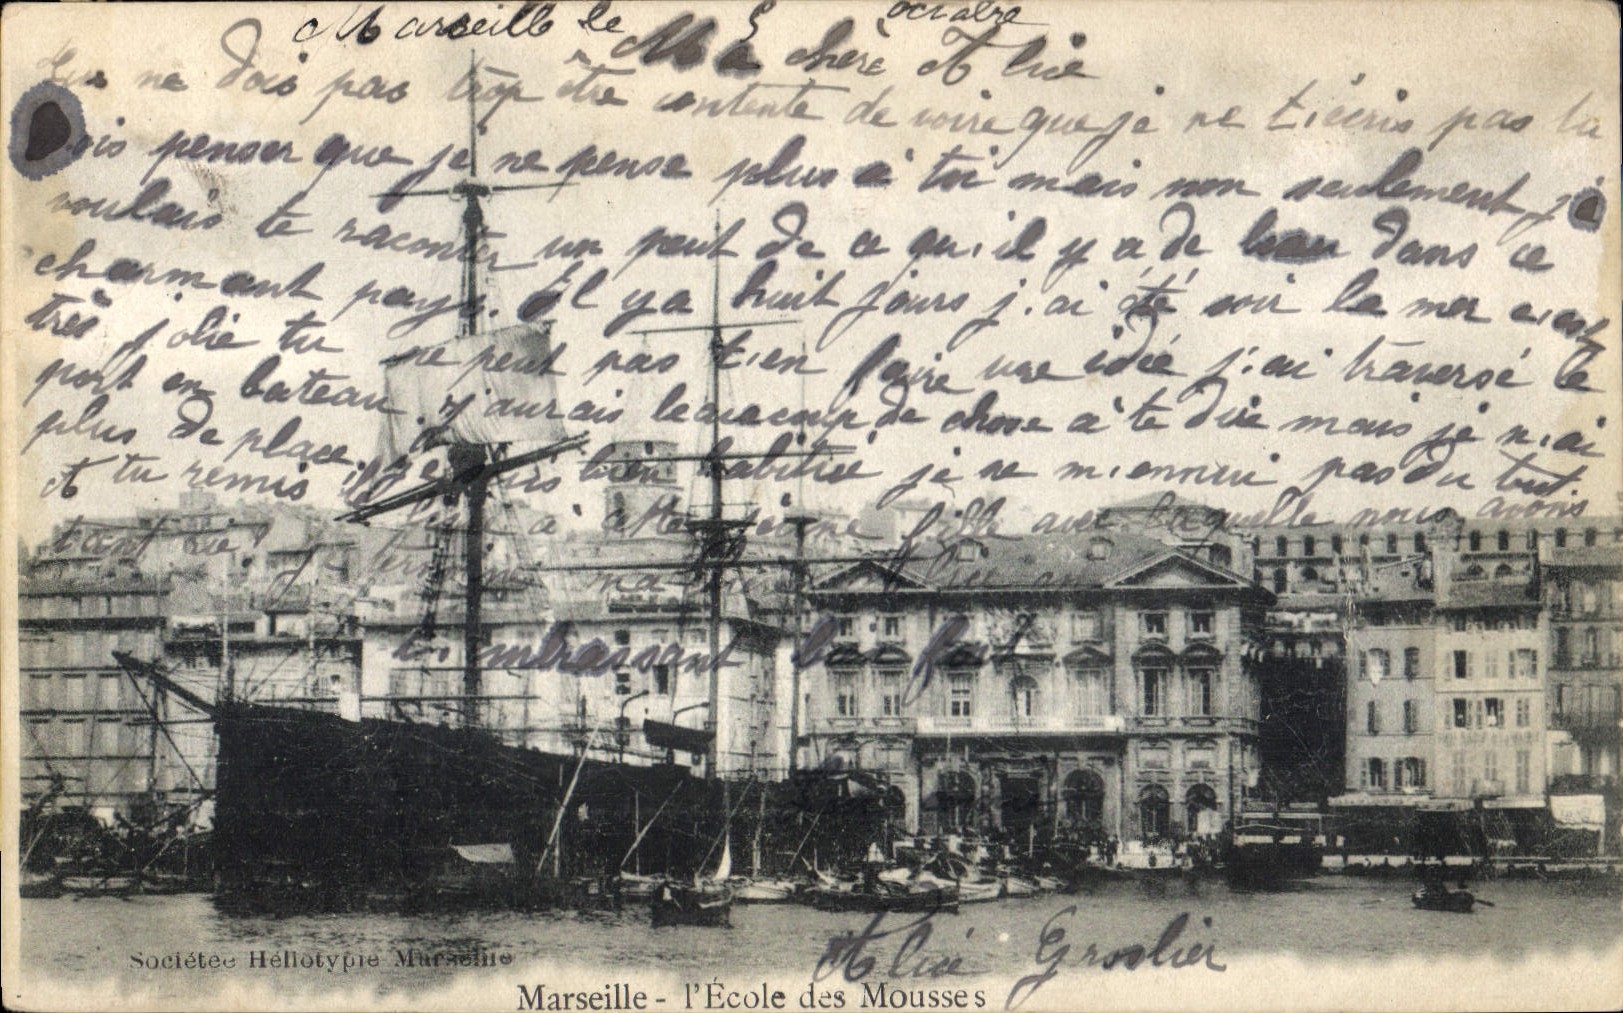 Marseille le 5 octobre
Ma chère Alice
Tu ne dois pas trop être contente de voire que je ne t'écris pas tu
dois penser que je ne pense plus à toi mais non seulement je
voulais te raconter un peut de ce qu'il y a de beau dans ce
charmant pays. Il y a huit jours j'ai été voir la mer c'est
très jolie tu ne peut pas t'en faire une idée j'ai traversé le
port en bateau. j'aurais beaucoup de chose à te dire mais je n'ai
plus de place. je suis bien habitué je ne m'ennui pas du tout
A tu remis à cette jeune fille avec laquelle nous avons
tant rie! Je termine ma en
t'embrassant bien fort.
Alice Groslier
Sociétée Héliotypie Marseille
Marseille - l'École des Mousses